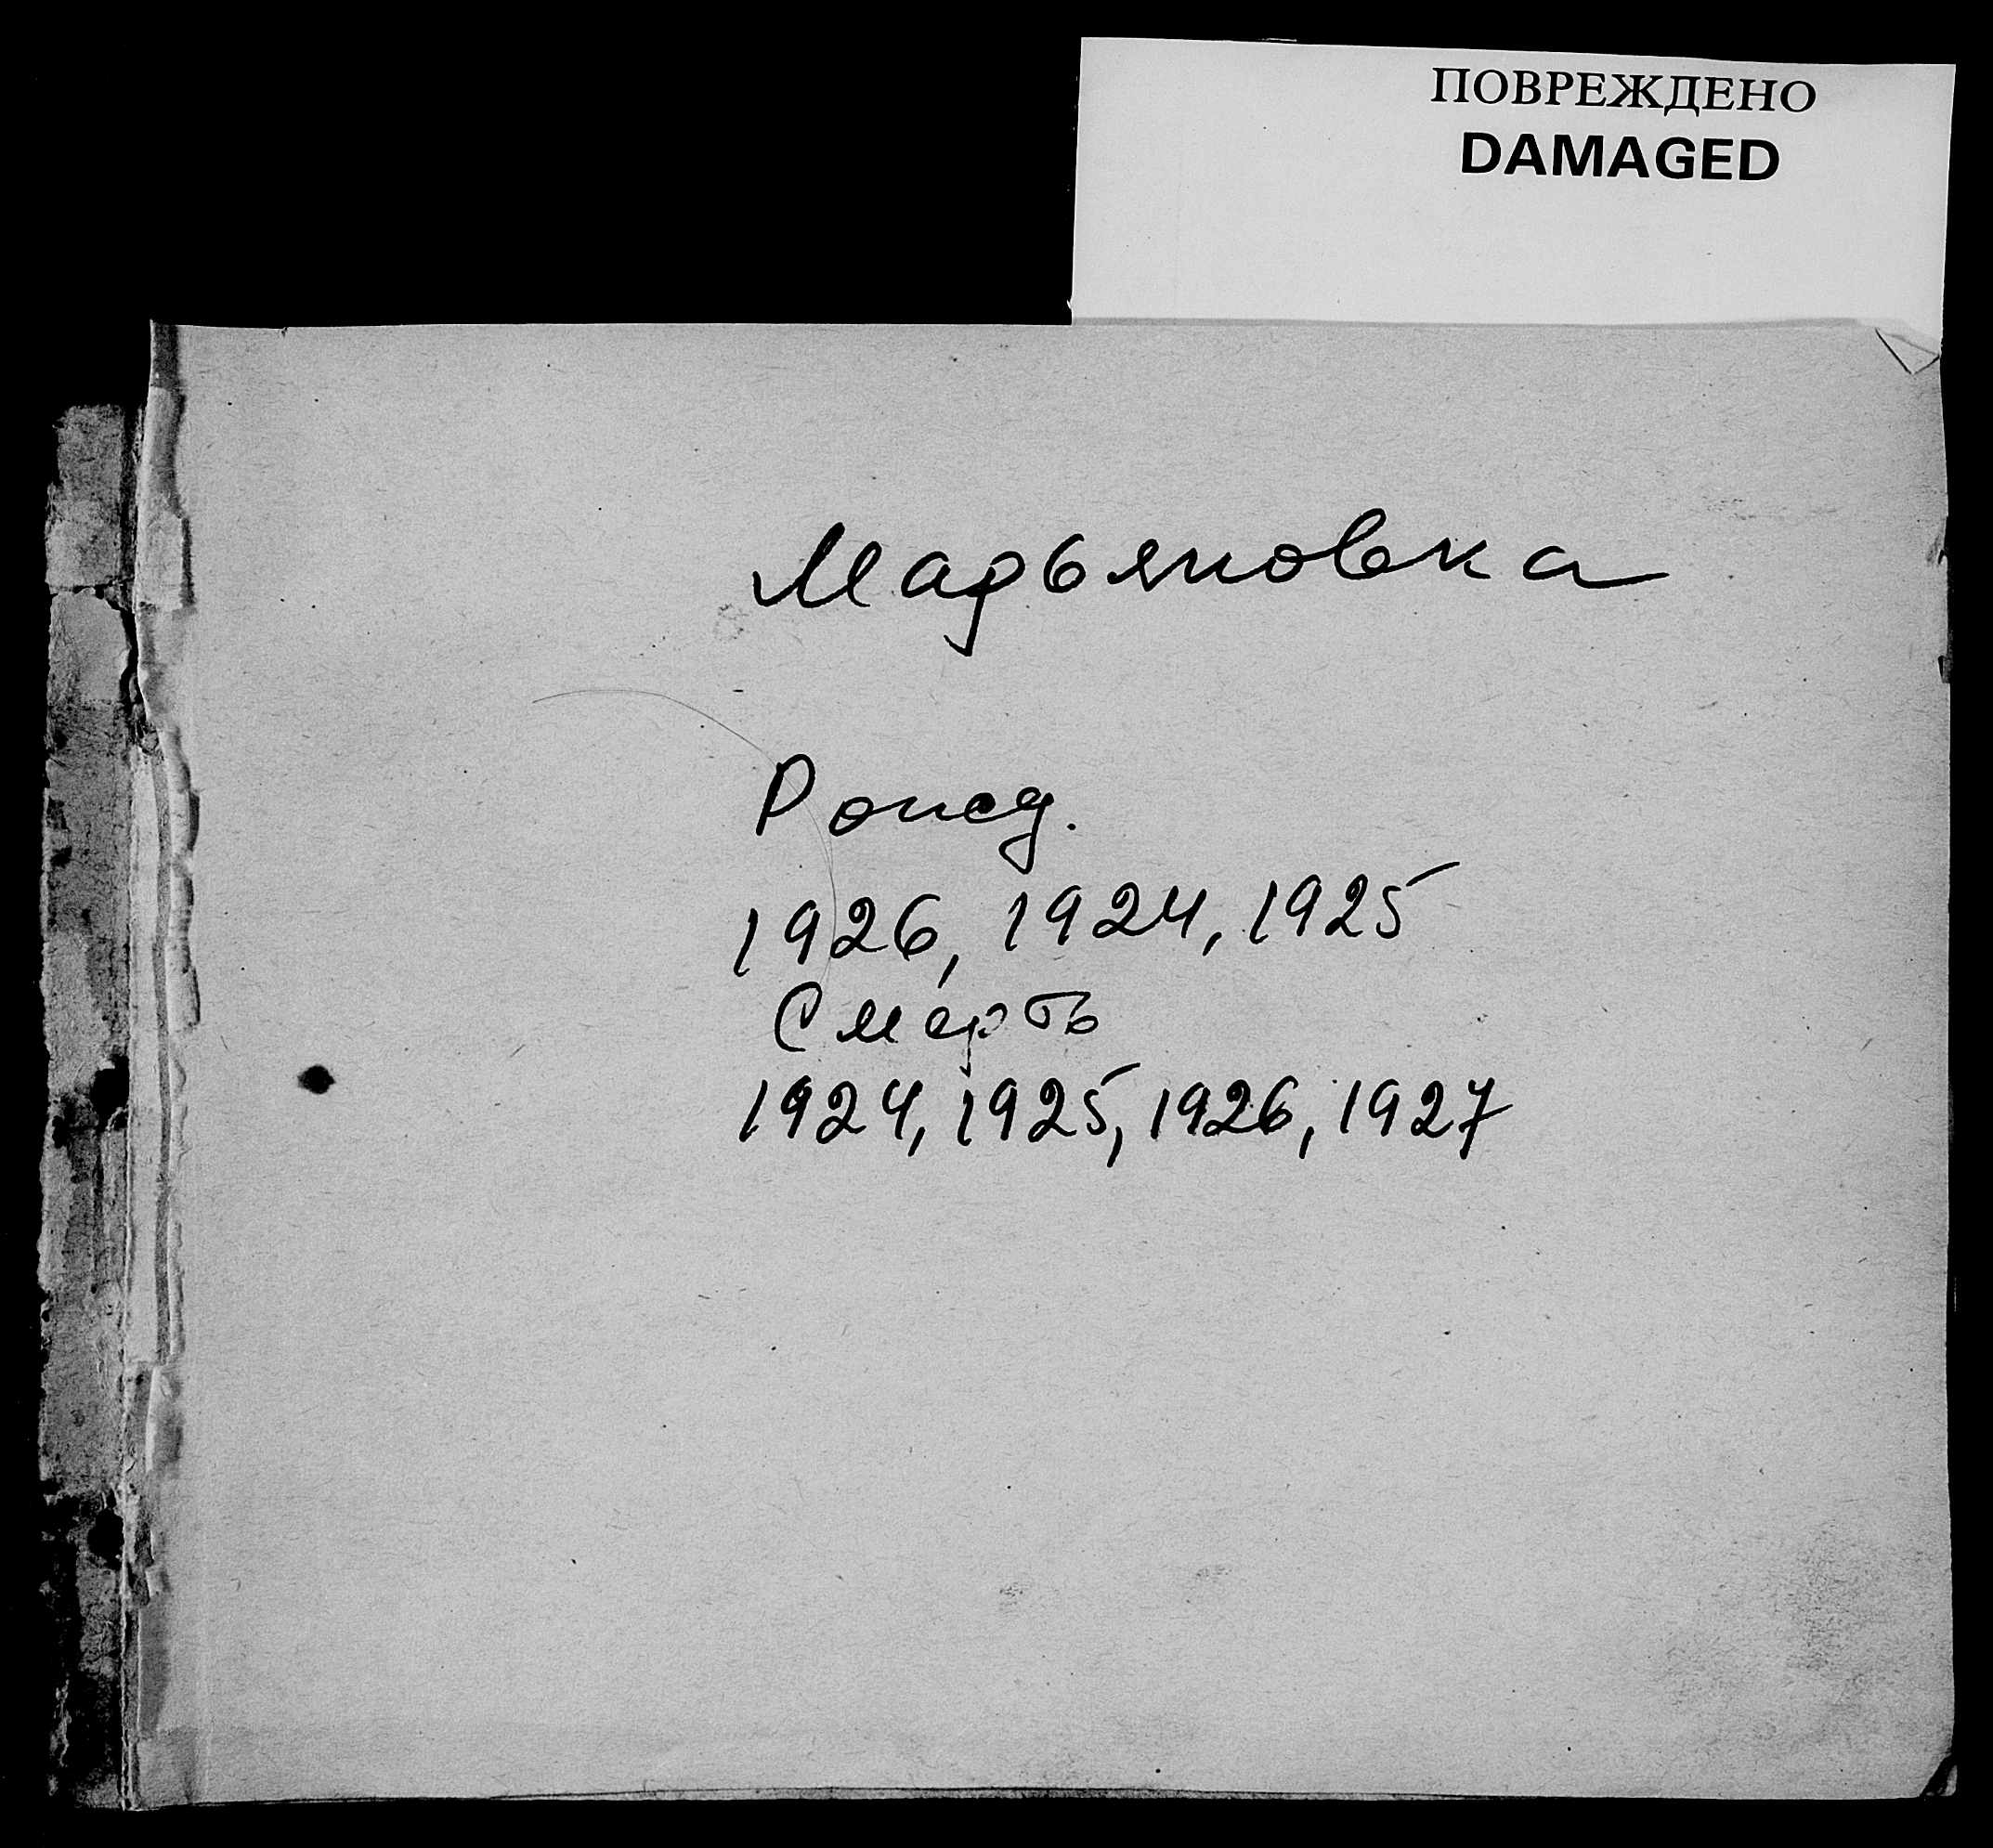 ПОВРЕЖДЕНО
DAMAGED
Марьяновка
Рожд.
1926, 1924, 1925
Смерть
1924, 1925, 1926, 1927